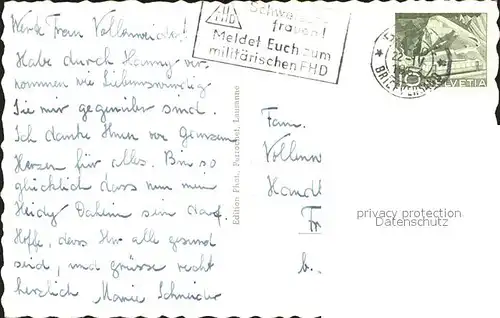 Werte Frau Vollenweider!
Habe durch Hanny ver-
nommen wie Liebenswürdig
Sie mir gegenüber sind.
Ich danke Ihnen von Ganzem
Herzen für alles. Bin so
glücklich dass nun mein
Heidy Daheim sein darf.
Hoffe, dass Ihr alle gesund
seid, und grüsse recht
herzlich Marie Schneider
Edition Phot. Perrochet, Lausanne
FHD
Schweizer-
frauen!
Meldet Euch zum
militärischen FHD
BRIEFVERSAND
HELVETIA
Fam.
Vollenw
Handl
Fr
b.
privacy protection
Datenschutz